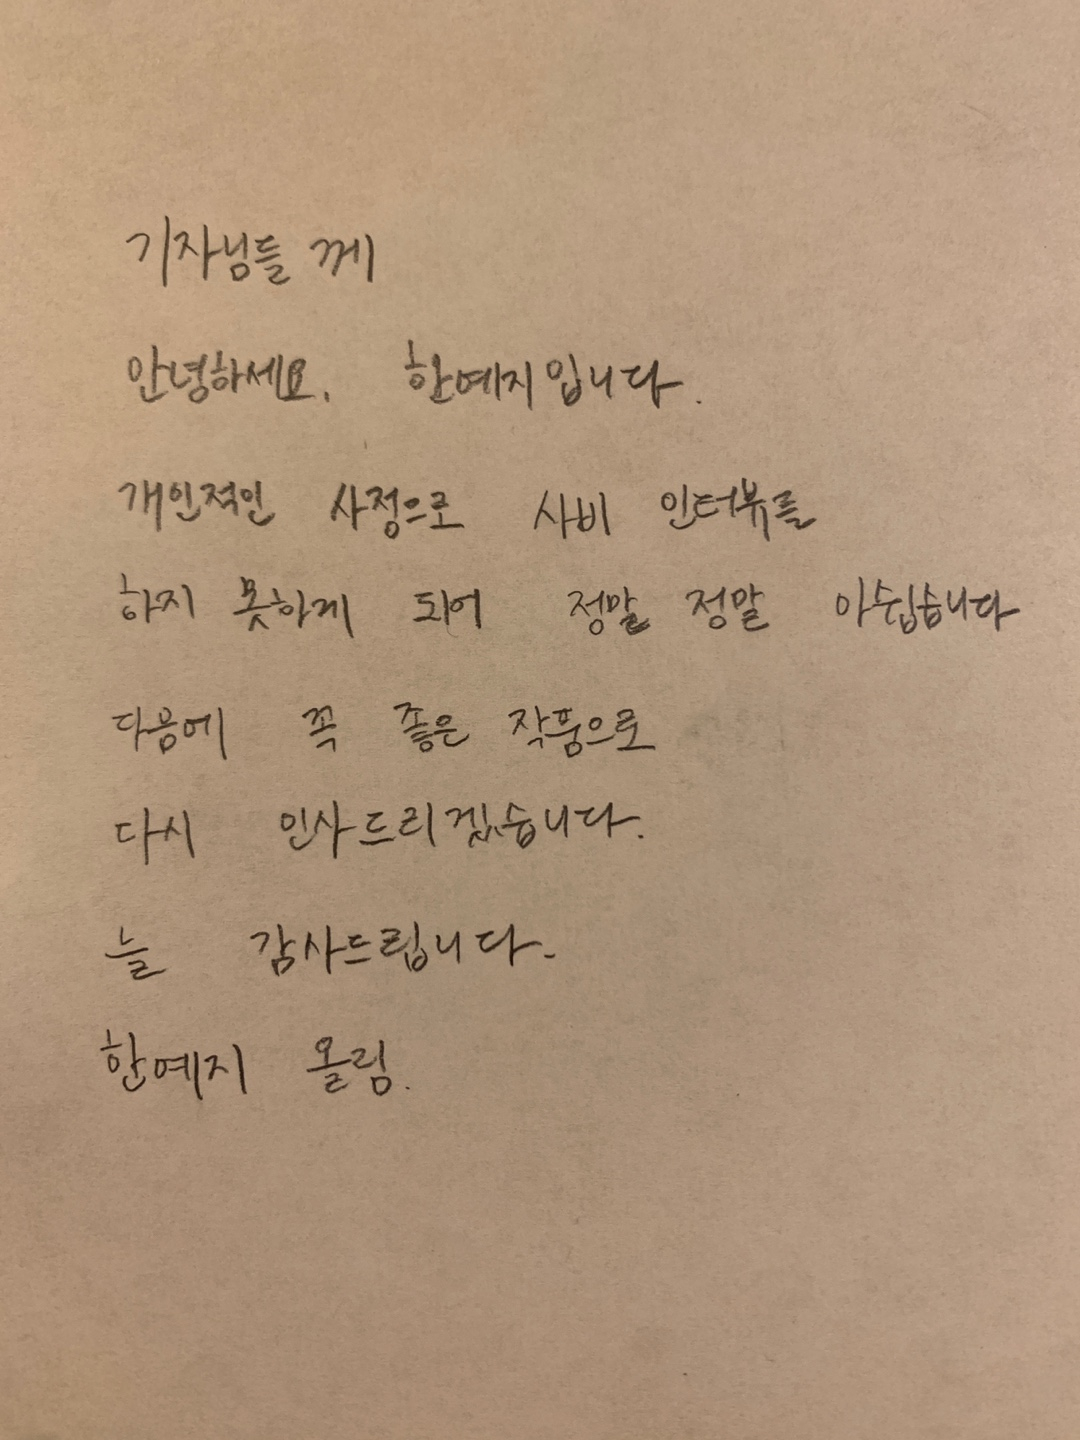 기자님들 께
안녕하세요. 한예지입니다.
개인적인 사정으로 사비 인터뷰를
하지 못하게 되어 정말 정말 아쉽습니다
다음에 꼭 좋은 작품으로
다시 인사드리겠습니다.
늘 감사드립니다.
한예지 올림.